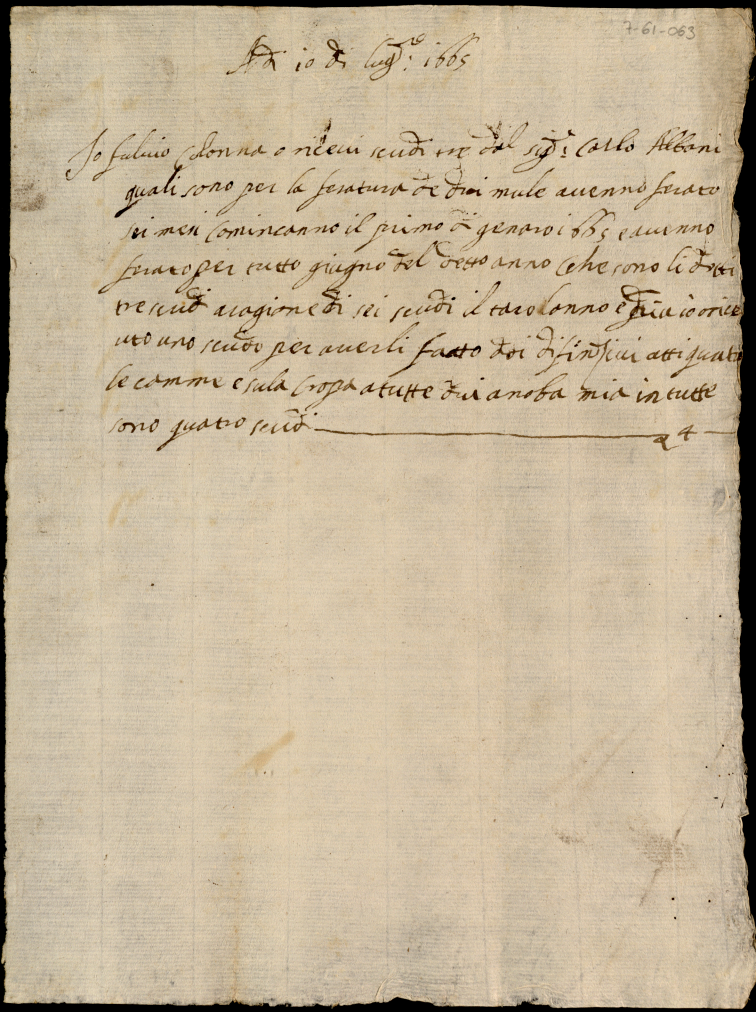 7-61-063
Adi 10 di lug.o: 1665
Io fulvio Colonna o ricevi scudi tre dal sig.r: Carlo Albani
quali sono per la feratura de dui mule avenno ferato
sei mesi Comincanno il primo di genaro 1665 e avenno
ferato per tutto giugno del detto anno Che sono li detti
tre scudi aragione di sei scudi il paro lanno e
uto uno scudo per averli fatto doi difinsivi atti quatro
le camme e sula Cropa a tutte dui a roba mia in tutte
sono quatro scudi 4